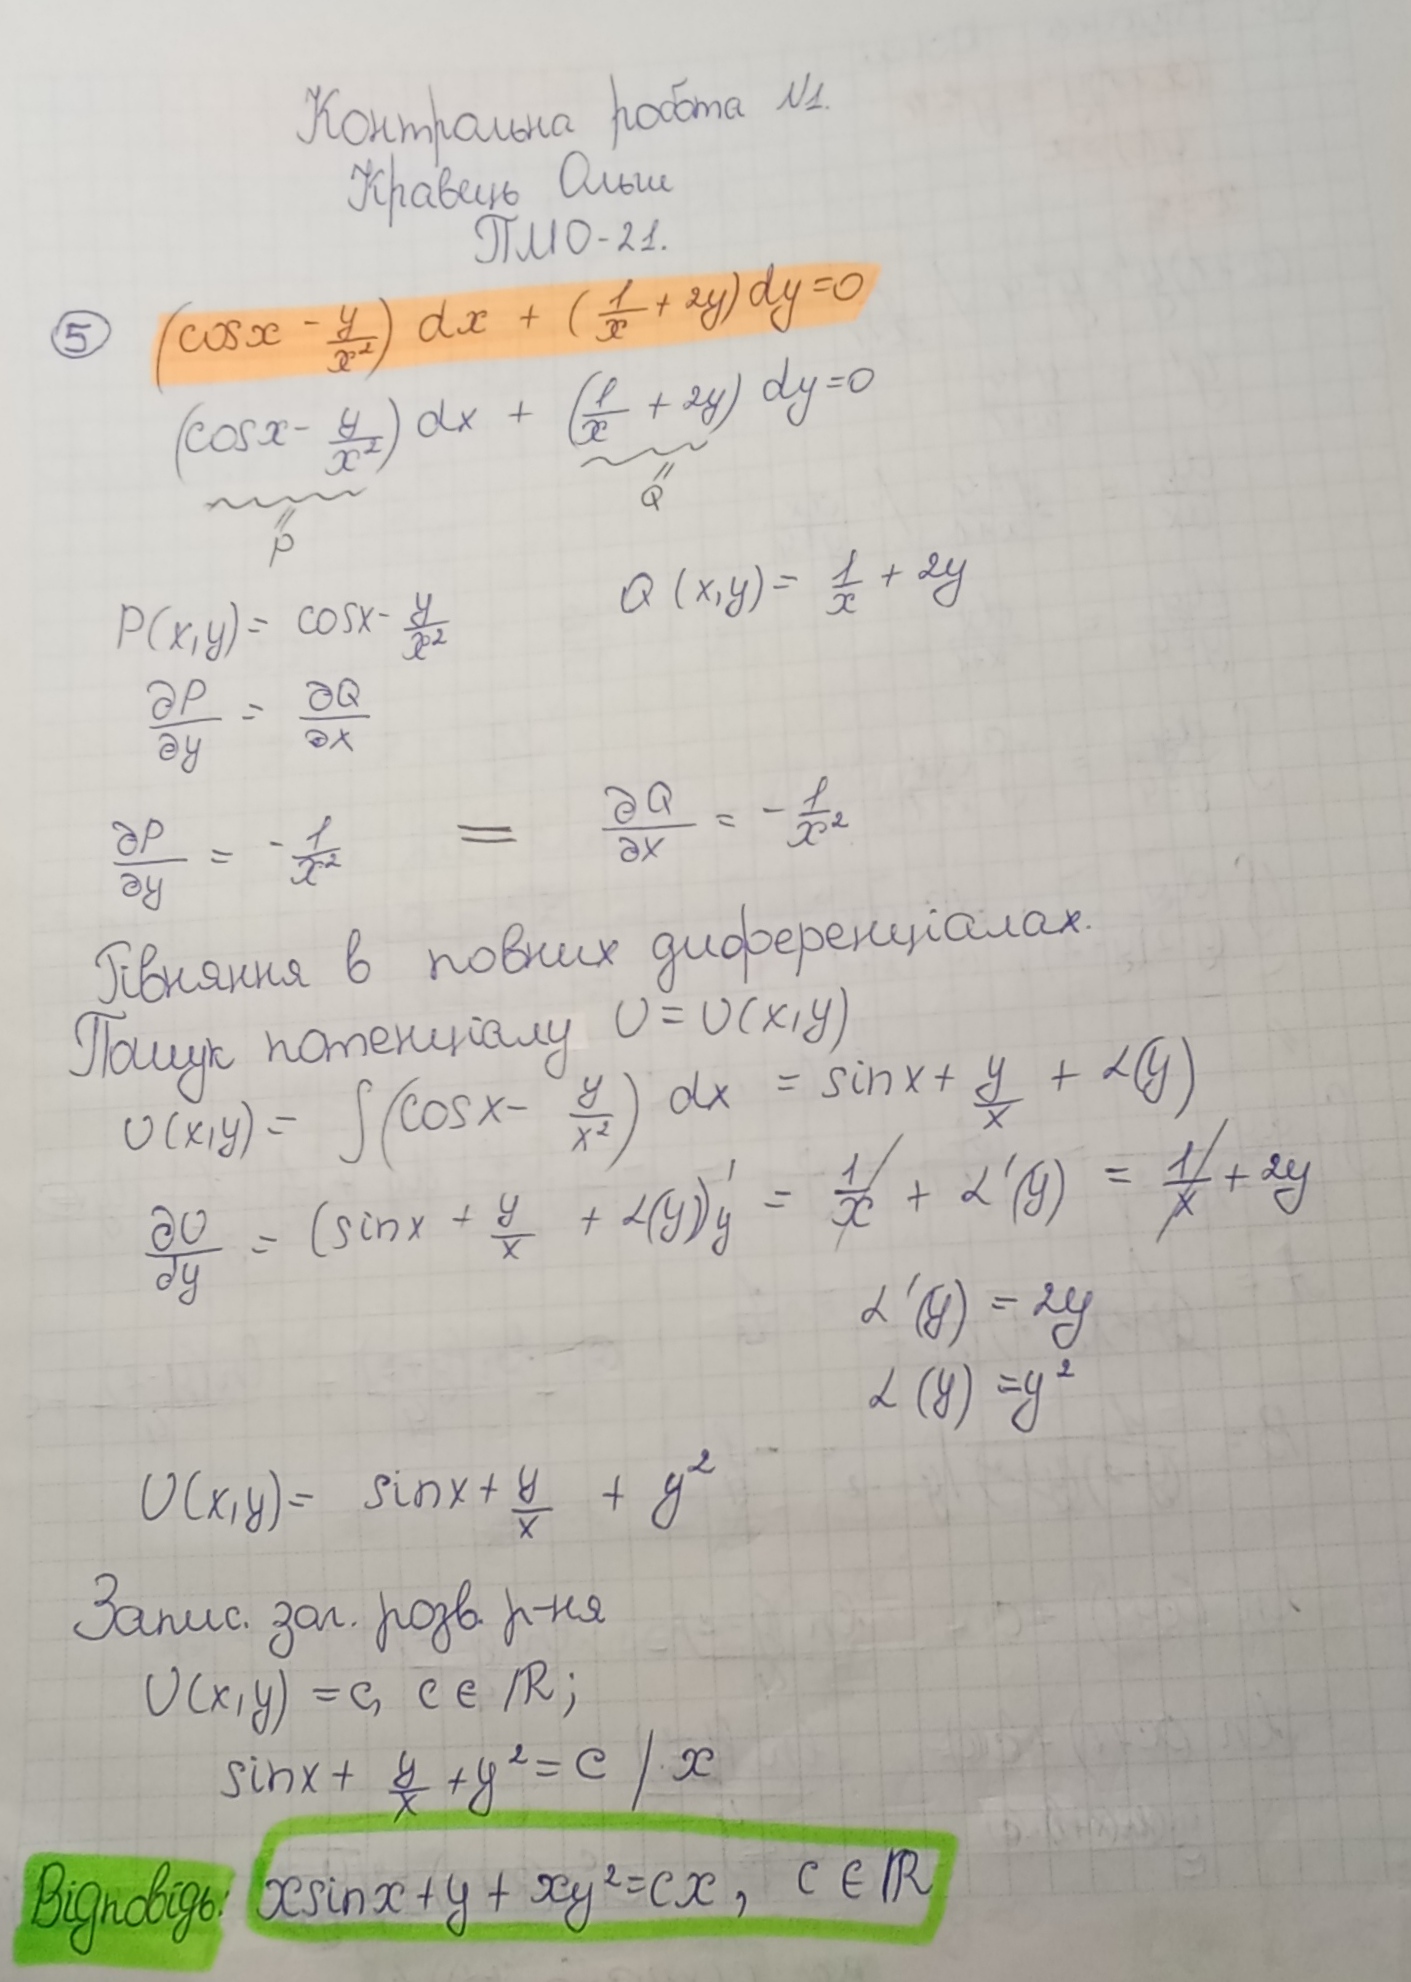 Контрольна робота №1.
Кравець Ольги
ПМО-21.
⑤ (cosx - y/x²) dx + (1/x + 2y) dy = 0
(cosx - y/x²) dx + (1/x + 2y) dy = 0
" Q
" P
P(x,y) = cosx - y/x² Q(x,y) = 1/x + 2y
∂P/∂y = ∂Q/∂x
∂P/∂y = -1/x² = ∂Q/∂x = -1/x²
Рівняння в повних диференціалах.
Пошук потенціалу U = U(x,y)
U(x,y) = ∫(cosx - y/x²) dx = sinx + y/x + α(y)
∂U/∂y = (sinx + y/x + α(y))'y = 1/x + α'(y) = 1/x + 2y
α'(y) = 2y
α(y) = y²
U(x,y) = sinx + y/x + y²
Запис. заг. розв. р-ня
U(x,y) = c, c ∈ ℝ;
sinx + y/x + y² = c /· x
Відповідь: xsinx + y + xy² = cx, c ∈ ℝ